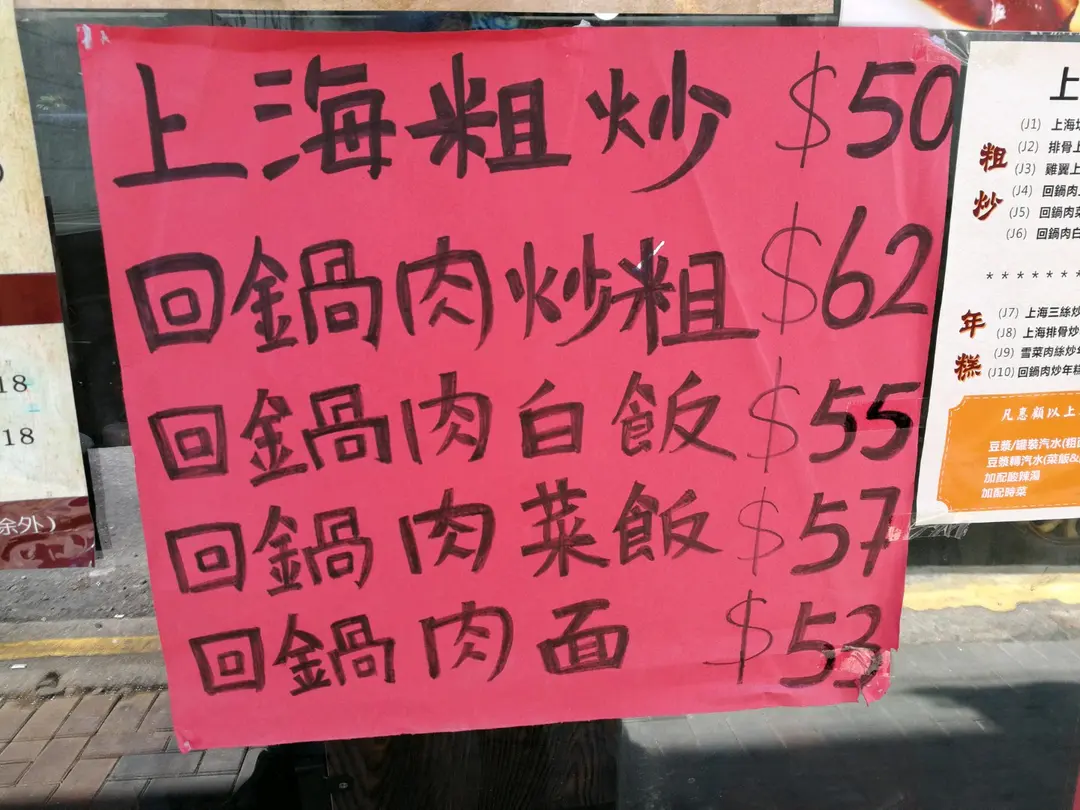 上海粗炒 $50
回鍋肉炒粗 $62
回鍋肉白飯 $55
回鍋肉菜飯 $57
回鍋肉面 $53
上
粗炒
(J1) 上海
(J2) 排骨
(J3) 雞翼上
(J4) 回鍋肉
(J5) 回鍋肉菜
(J6) 回鍋肉白
* * * * * * *
年糕
(J7) 上海三絲炒
(J8) 上海排骨炒
(J9) 雪菜肉絲炒
(J10) 回鍋肉炒年糕
凡惠顧以上
豆漿/罐裝汽水(粗
豆漿轉汽水(菜飯&
加配酸辣湯
加配時菜
18
18
余外)